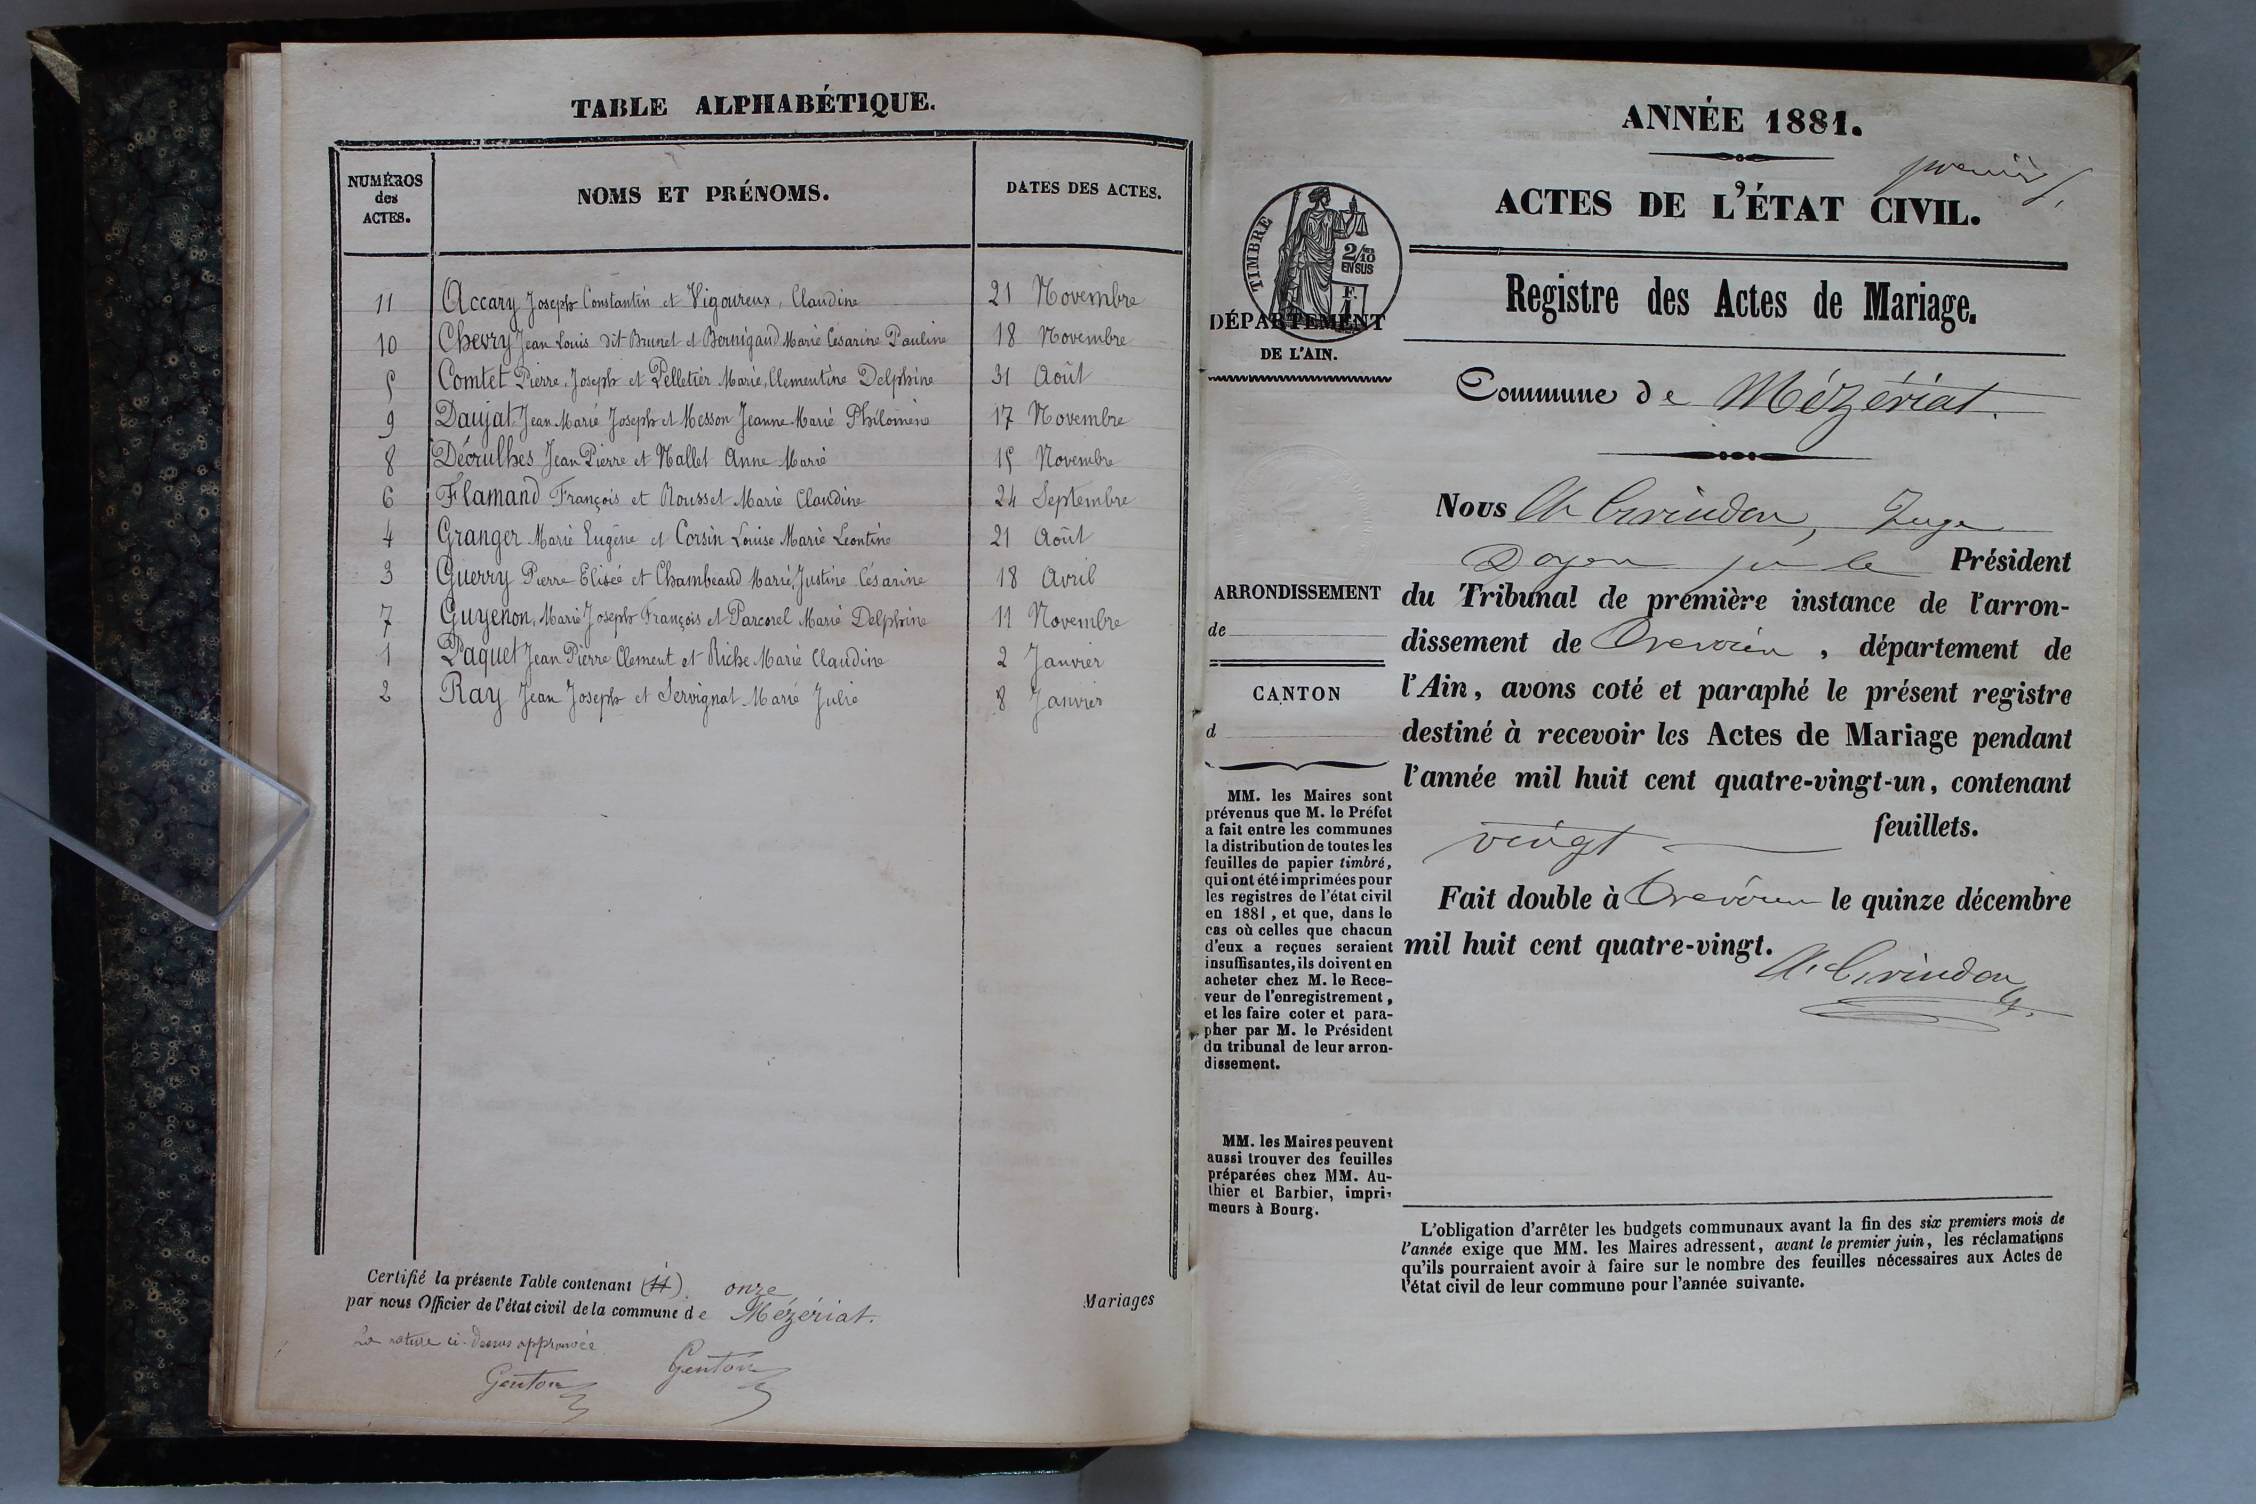 TABLE ALPHABÉTIQUE.
NUMÉROS des ACTES. NOMS ET PRÉNOMS. DATES DES ACTES.
11 Accary Joseph Constantin et Vigoureux, Claudine 21 Novembre
10 Chevry Jean Louis dit Brunet et Bernigaud Marie Césarine Pauline 18 Novembre
5 Comtet Pierre, Joseph et Pelletier Marie, Clementine Delphine 31 Août
9 Daujat, Jean Marie Joseph et Messon Jeanne Marie Philomène 17 Novembre
8 Décrulhes Jean Pierre et Nallet Anne Marie 15 Novembre
6 Flamand François et Rousset Marie Claudine 24 Septembre
4 Granger Marie Eugène et Corsin Louise Marie Léontine 21 Août
3 Guerry Pierre Elisée et Chambeaud Marie, Justine Césarine 18 Avril
7 Guyenon, Marie Joseph François et Parcorel Marie Delphine 11 Novembre
1 Paquet Jean Pierre Clement et Riche Marie Claudine 2 Janvier
2 Ray Jean Joseph et Servignat Marie Julie 8 Janvier
Certifié la présente Table contenant (11) onze Mariages
par nous Officier de l'état civil de la commune de Mézériat.
La rature ci-dessus approuvée
Genton Genton
ANNÉE 1881.
premier
ACTES DE L'ÉTAT CIVIL.
TIMBRE
2/10
EN SUS
F.
1
Registre des Actes de Mariage.
DÉPARTEMENT
DE L'AIN.
Commune de Mézériat.
Nous Juge
Doyen Président
du Tribunal de première instance de l'arron-
dissement de Trévoux, département de
l'Ain, avons coté et paraphé le présent registre
destiné à recevoir les Actes de Mariage pendant
l'année mil huit cent quatre-vingt-un, contenant
vingt feuillets.
Fait double à Trévoux le quinze décembre
mil huit cent quatre-vingt.
ARRONDISSEMENT
de
CANTON
d
MM. les Maires sont
prévenus que M. le Préfet
a fait entre les communes
la distribution de toutes les
feuilles de papier timbré,
qui ont été imprimées pour
les registres de l'état civil
en 1881, et que, dans le
cas où celles que chacun
d'eux a reçues seraient
insuffisantes, ils doivent en
acheter chez M. le Rece-
veur de l'enregistrement,
et les faire coter et para-
pher par M. le Président
du tribunal de leur arron-
dissement.
MM. les Maires peuvent
aussi trouver des feuilles
préparées chez MM. Au-
thier et Barbier, impri-
meurs à Bourg.
L'obligation d'arrêter les budgets communaux avant la fin des six premiers mois de
l'année exige que MM. les Maires adressent, avant le premier juin, les réclamations
qu'ils pourraient avoir à faire sur le nombre des feuilles nécessaires aux Actes de
l'état civil de leur commune pour l'année suivante.